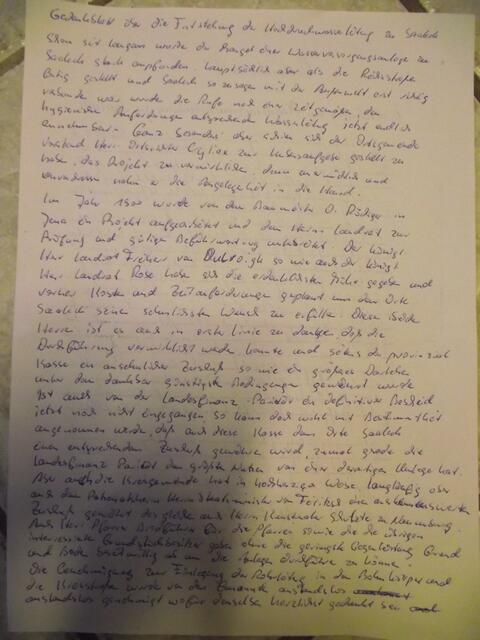 Gedenkblatt über die Entstehung der Hochdruckwasserleitung zu Saaleck
Schon seit langem wurde der Mangel einer Wasserversorgungsanlage zu
Saaleck gleich empfunden. Hauptsächlich aber als die Reichsstraße
fertig gestellt und Saaleck so zu sagen mit der Außenwelt erst richtig
verbunden war wurde die Rufe nach einer zeitgemäßen, den
hygienischen Anforderungen entsprechenden Wasserleitung jetzt endlich
Ganz besonders aber schien sich der Ortsgemeinde
Vorstand Herr Ortsrichter zur Lebensaufgabe gestellt zu
habe, das Projekt zu verwirklichen, denn unermüdlich und
nahm er die Angelegenheit in die Hand.
Im Jahr 1900 wurde von dem Baumeister O. Rüdiger in
Jena ein Projekt aufgearbeitet und dem Herrn Landrat zur
Prüfung und gütigen Befürwortung unterbreitet. Der königl
Herr Landrat Freiherr von so wie auch der königl
Herr Landrat Rose habe sich die erdenklichsten Mühe gegeben und
vorher Kosten und Zeitanforderungen geplant um dem Orte
Saaleck seinen sehnlichsten Wunsch zu erfüllen. Diesen beiden
Herren ist es auch in erster Linie zu danken, daß die
Durchführung verwirklicht werden konnte und seitens der provinzial
Kasse ein ansehnlicher Zuschuß so wie ein größeres Darlehen
unter den denkbar günstigsten Bedingungen gewährt wurde
Ist auch von der Landesfinanz ein definitiver Bescheid
jetzt noch nicht eingegangen so kann doch wohl mit Bestimmtheit
angenommen werde, daß auch diese Kasse dem Orte Saaleck
einen entsprechenden Zuschuß gewähre wird, zumal grade die
Landesfinanz den größten Nutzen von einer derartigen Anlage hat.
Aber auch die Kreisgemeinde hat in hochherziger Weise
aus dem einen anerkennenswerten
Zuschuß gewährt, desgleichen auch Herr zu Naumburg.
Auch Herr Pfarrer für die Pfarrei sowie die übrigen
interessierte Grundstücksbesitzer gaben ohne die geringste Gegenleistung Grund
und Boden bereitwillig ab um die Anlagen durchführe zu könne.
Die Genehmigung zur Einlegung der Rohrleitung in den Bahnkörper und
die Kreisstraße wurde von den anstandslos
anstandslos genehmigt wofür denselben herzlichst gedankt sei